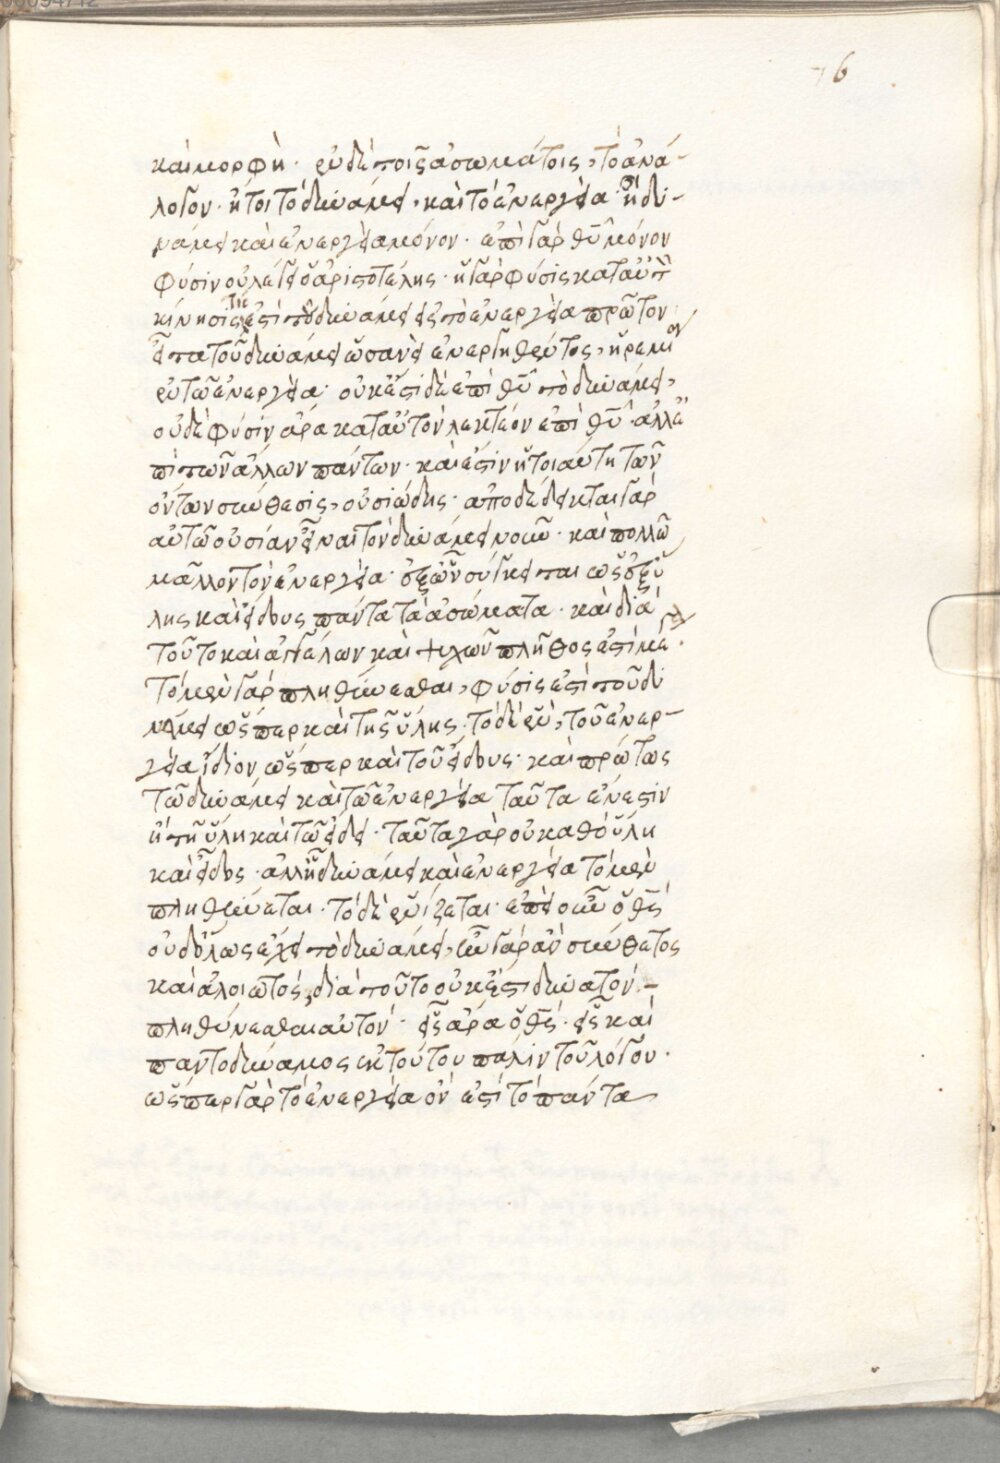 6
καὶ μορφή· ἐν δὲ τοῖς ἀσωμάτοις, τὸ ἀνά-
λογον· ἤτοι τὸ δυνάμει, καὶ τὸ ἐνεργείᾳ· ἢ δυ-
νάμει καὶ ἐνεργείᾳ μόνον· ἐπὶ γὰρ θῦ μόνον
φύσιν οὐ λέγει ὁ ἀριστοτέλης· ἡ γὰρ φύσις κατ' αὐτὸν
κίνησίς τίς ἐστι τοῦ δυνάμει εἰς τὸ ἐνεργείᾳ πρῶτον
τοῦ δυνάμει ὡσανεὶ ἐνεργηθέντος, ἠρεμ
ἐν τῶ ἐνεργείᾳ· οὐκ ἔστι δὲ ἐπὶ θῦ τὸ δυνάμει,
οὐδὲ φύσιν ἄρα κατ' αὐτὸν λεκτέον ἐπὶ θῦ· ἀλλ' ἐ
πὶ τῶν ἄλλων πάντων· καὶ ἔστιν ἡ τοιαύτη τῶν
ὄντων σύνθεσις, οὐσιώδης· ἀποδέδεικται γὰρ
αὐτῶ οὐσίαν εἶναι τὸν δυνάμει νοῦν· καὶ πολλῶ
μᾶλλον τὸν ἐνεργείᾳ· ἐξ ὧν συνῆκται ὡς ἐξ ὕ
λης καὶ εἴδους πάντα τὰ ἀσώματα· καὶ διὰ
τοῦτο καὶ ἀγγέλων καὶ ψυχῶν πλῆθος ἐστὶ
τὸ μὲν γὰρ πληθύνεσθαι, φύσις ἐστὶ τοῦ δυ
νάμει ὥσπερ καὶ τῆς ὕλης· τὸ δὲ ἓν, τοῦ ἐνερ-
γείᾳ ἴδιον ὥσπερ καὶ τοῦ εἴδους· καὶ πρώτως
τῶ δυνάμει καὶ τῶ ἐνεργείᾳ ταῦτα ἔνεστιν
ἢ τῆ ὕλη καὶ τῶ εἴδει· ταῦτα γὰρ οὐ καθὸ ὕλη
καὶ εἶδος· ἀλλ' ἧ δυνάμει καὶ ἐνεργείᾳ τὸ μὲν
πληθύνεται· τὸ δὲ ἑνίζεται· ἐπεὶ οὖν ὁ θς
οὐδόλως ἔχει τὸ δυνάμει, ἦν γὰρ ἂν σύνθετος
καὶ ἀλοιωτός, διὰ τοῦτο οὐκ ἔστι δυνατὸν
πληθύνεσθαι αὐτόν· εἷς ἄρα ὁ θς· εἷς καὶ
παντοδύναμος ἐκ τούτου πάλιν τοῦ λόγου·
ὥσπερ γὰρ τὸ ἐνεργείᾳ ὂν ἐστὶ τὸ πάντα